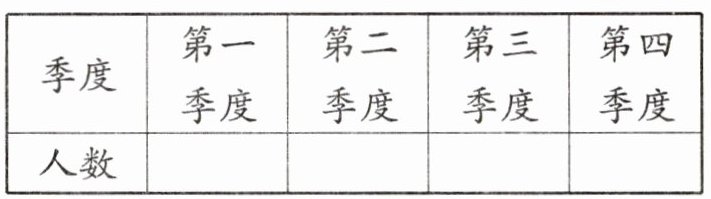 季度 第一季度 第二季度 第三季度 第四季度
人数